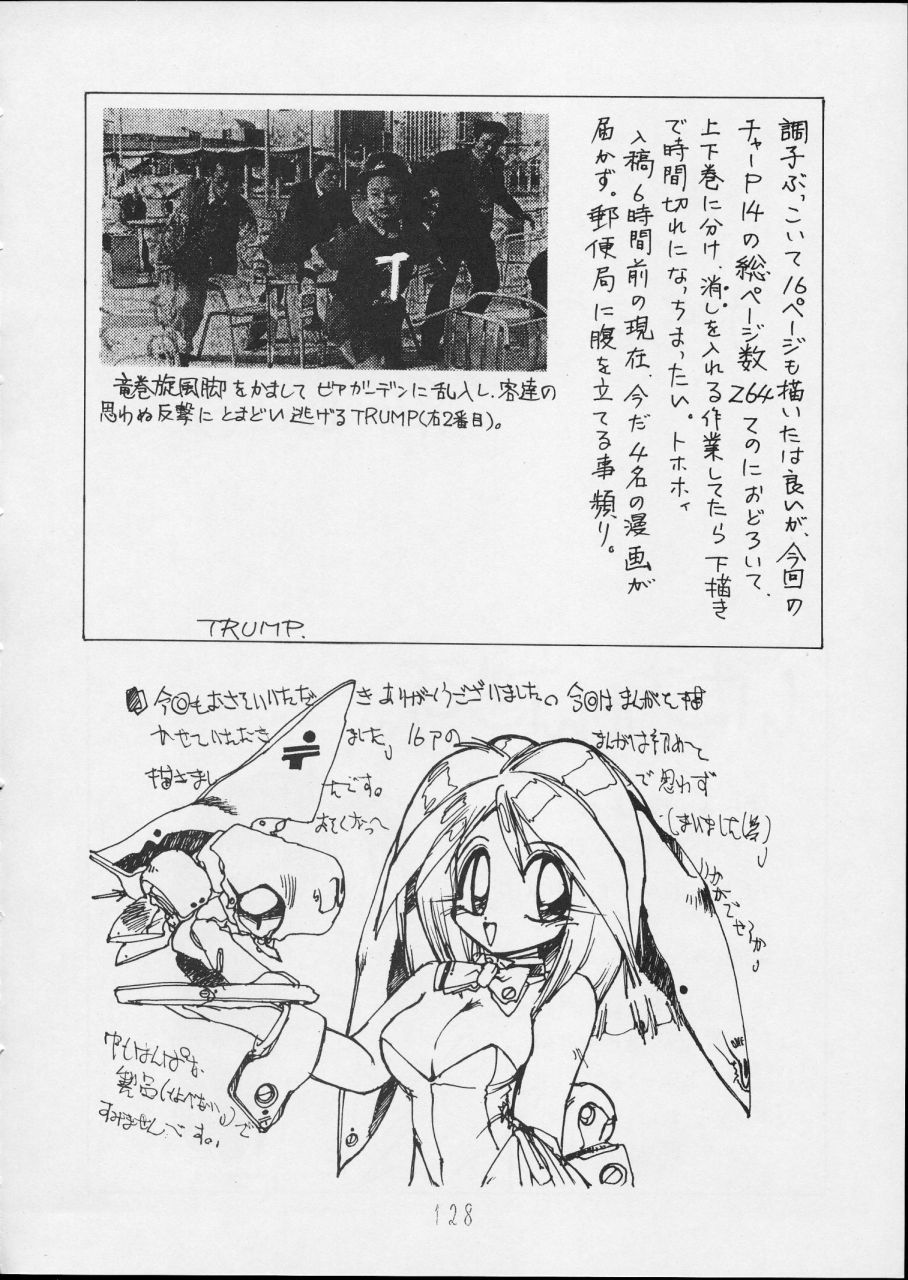 調子ぶっこいて16ページも描いたは良いが、今回の
チャーP14の総ページ数264てのにおどろいて、
上下巻に分け、消しを入れる作業してたら下描き
で時間切れになっちまったい。トホホィ
入稿6時間前の現在、今だ4名の漫画が
届かず。郵便局に腹を立てる事頻り。
T
竜巻旋風脚をかましてビアガーデンに乱入し、客達の
思わぬ反撃にとまどい逃げるTRUMP(右2番目)。
TRUMP.
今回もおさそいいただきありがとうございました。今回はまんがを描
かせていただきました。16Pのまんがは初めて
描きましたです。で思わず
おそくなって
しまいました
いかがでせうか。
ちゅうとはんぱな
製品
すみませんです。
128